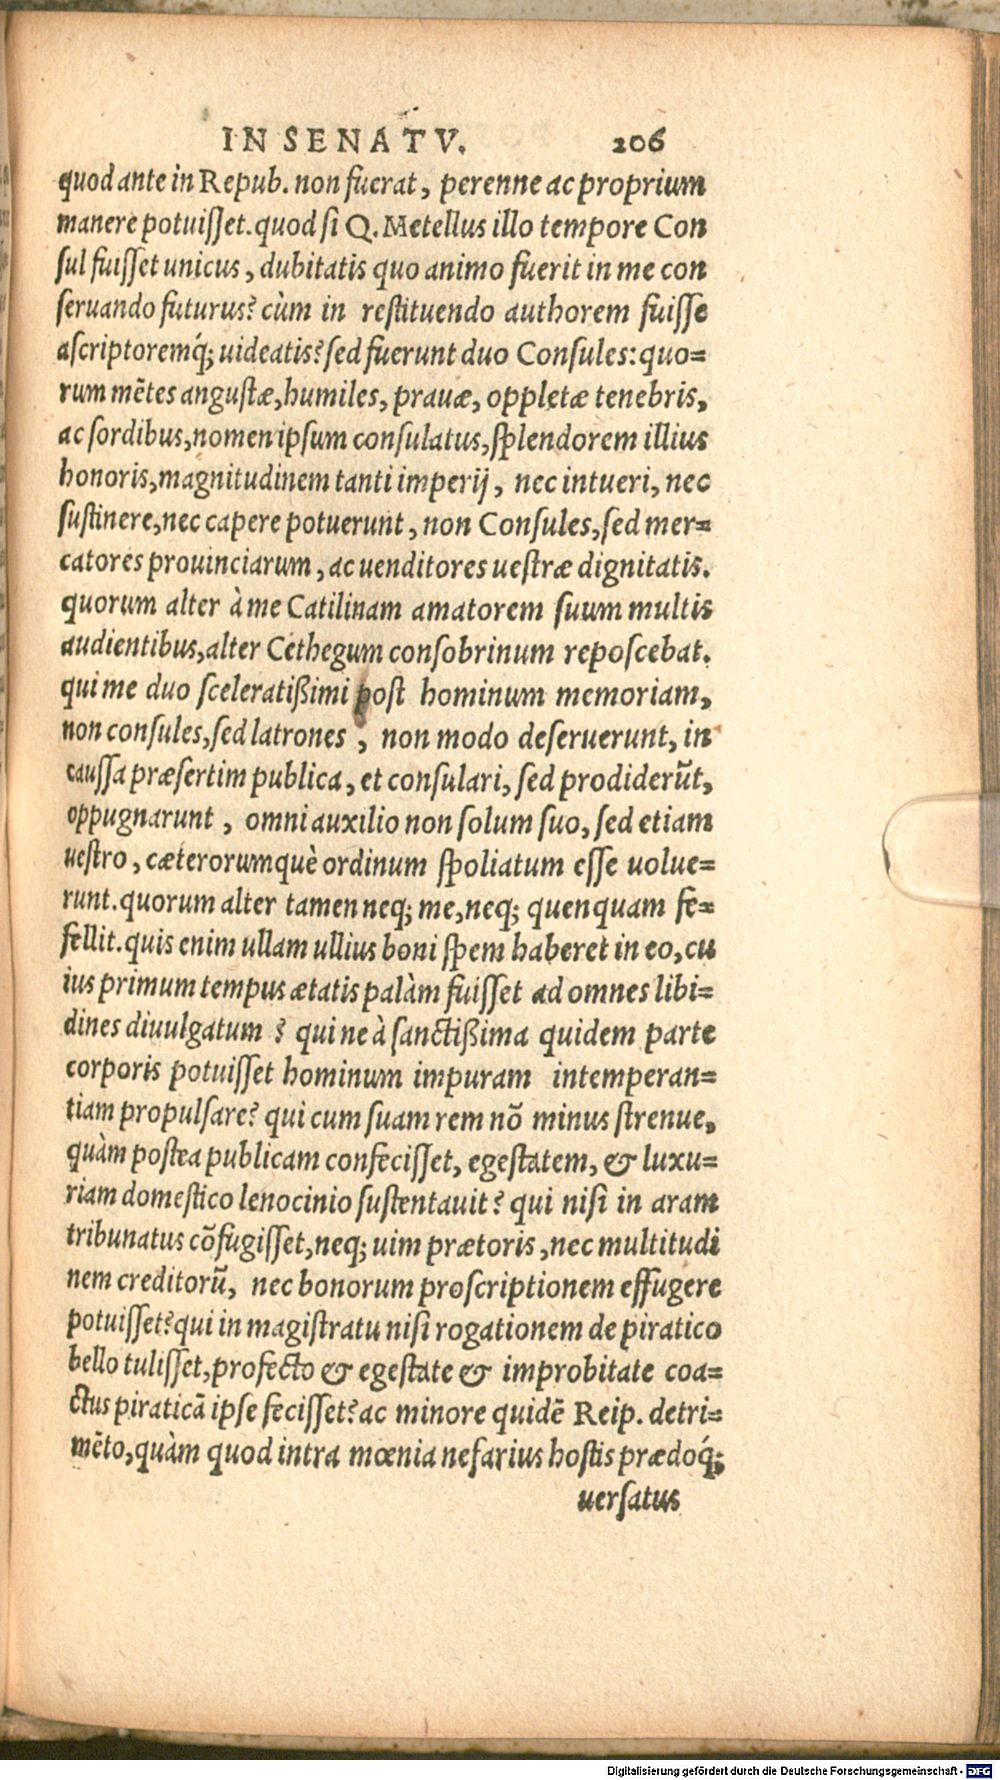 IN SENATV. 206
quod ante in Repub. non fuerat, perenne ac proprium
manere potuisset. quod si Q. Metellus illo tempore Con
sul fuisset unicus, dubitatis quo animo fuerit in me con
seruando futurus? cùm in restituendo authorem fuisse
ascriptoremq́; uideatis? sed fuerunt duo Consules: quo=
rum mẽtes angustæ, humiles, prauæ, oppletæ tenebris,
ac sordibus, nomen ipsum consulatus, splendorem illius
honoris, magnitudinem tanti imperij, nec intueri, nec
sustinere, nec capere potuerunt, non Consules, sed mer=
catores prouinciarum, ac uenditores uestræ dignitatis.
quorum alter à me Catilinam amatorem suum multis
audientibus, alter Cethegum consobrinum reposcebat.
qui me duo sceleratißimi post hominum memoriam,
non consules, sed latrones, non modo deseruerunt, in
caussa præsertim publica, et consulari, sed prodiderũt,
oppugnarunt, omni auxilio non solum suo, sed etiam
uestro, cæterorumquè ordinum spoliatum esse uolue=
runt. quorum alter tamen neq; me, neq; quenquam fe=
fellit. quis enim ullam ullius boni spem haberet in eo, cu
ius primum tempus ætatis palàm fuisset ad omnes libi=
dines diuulgatum? qui ne à sanctißima quidem parte
corporis potuisset hominum impuram intemperan=
tiam propulsare? qui cum suam rem nõ minus strenue,
quàm postea publicam confecisset, egestatem, & luxu=
riam domestico lenocinio sustentauit? qui nisi in aram
tribunatus cõfugisset, neq; uim prætoris, nec multitudi
nem creditorũ, nec bonorum proscriptionem effugere
potuisset? qui in magistratu nisi rogationem de piratico
bello tulisset, profecto & egestate & improbitate coa=
ctus piraticã ipse fecisset? ac minore quidẽ Reip. detri=
mẽto, quàm quod intra mœnia nefarius hostis prædoq́;
uersatus
Digitalisierung gefördert durch die Deutsche Forschungsgemeinschaft - DFG